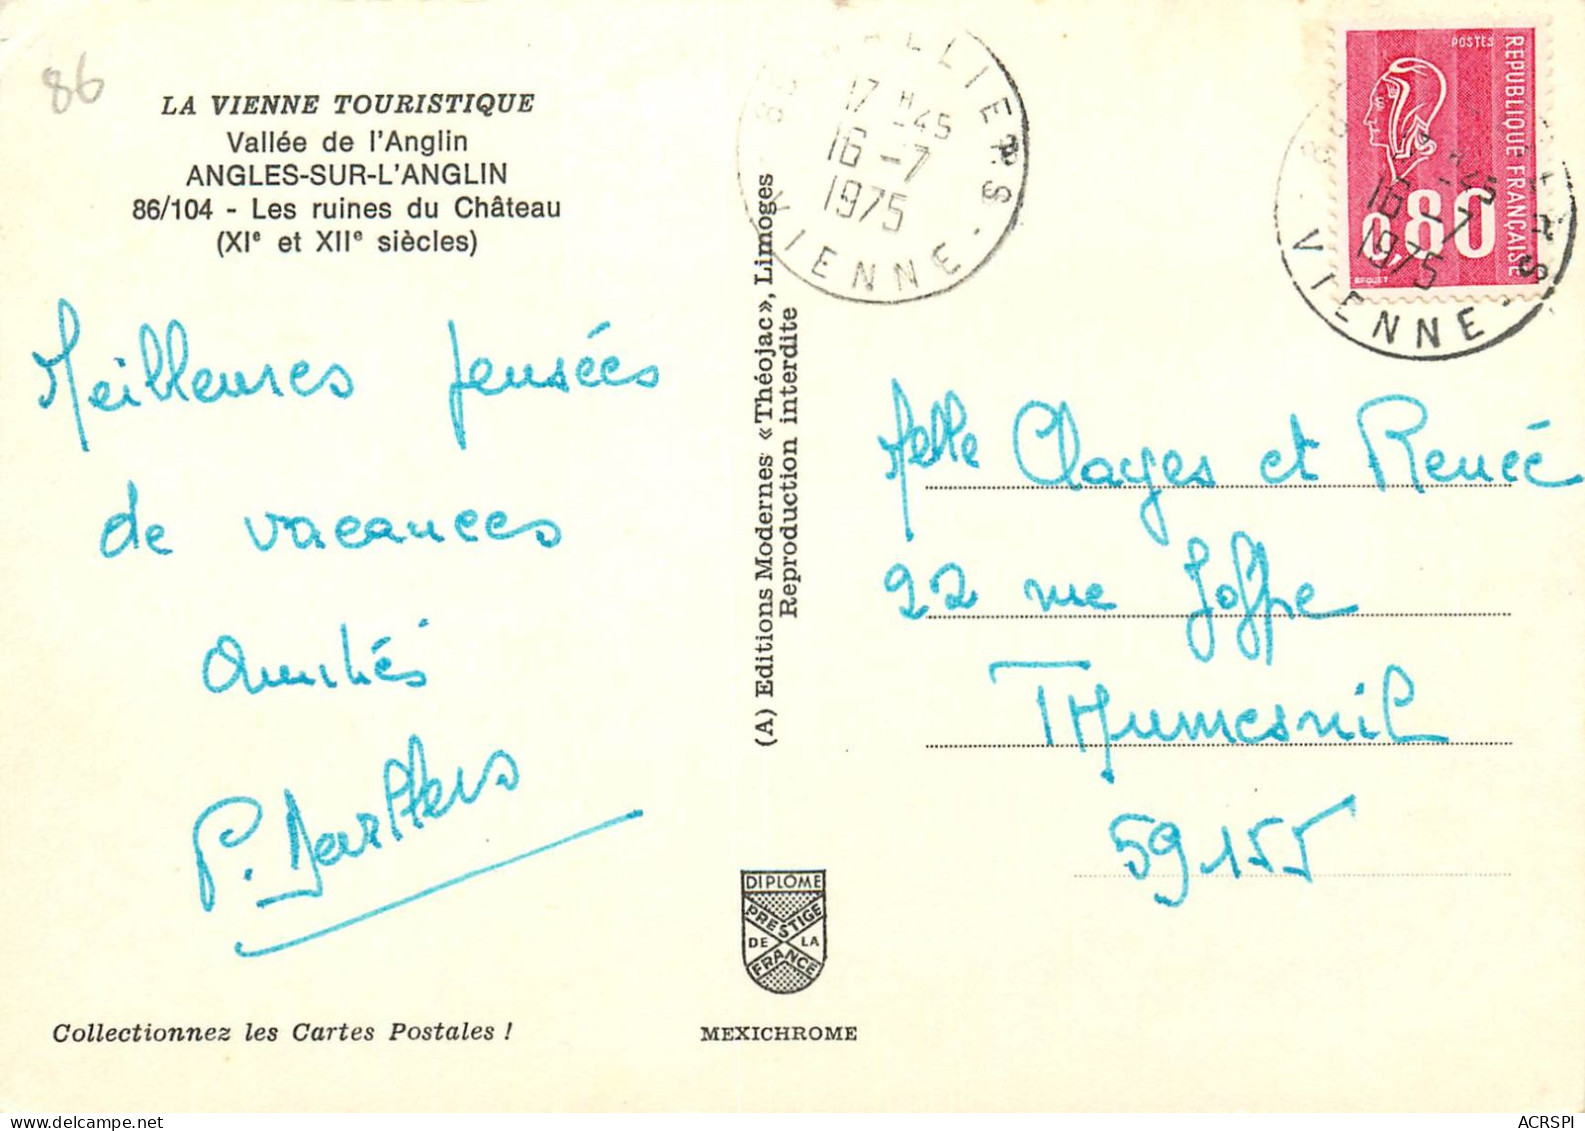 86
LA VIENNE TOURISTIQUE
Vallée de l'Anglin
ANGLES-SUR-L'ANGLIN
86/104 - Les ruines du Château
(XIe et XIIe siècles)
Meilleures pensées
de vacances
Amitiés
Collectionnez les Cartes Postales !
17 H 45
16 - 7
1975
VIENNE
(A) Editions Modernes « Théojac », Limoges
Reproduction interdite
DIPLOME
PRESTIGE
DE LA
FRANCE
MEXICHROME
POSTES
REPUBLIQUE FRANÇAISE
0,80
BEQUET
16 - 7
1975
VIENNE
Melle Clayes et Renée
22 rue Joffre
THumesnil
59155
ACRSPI